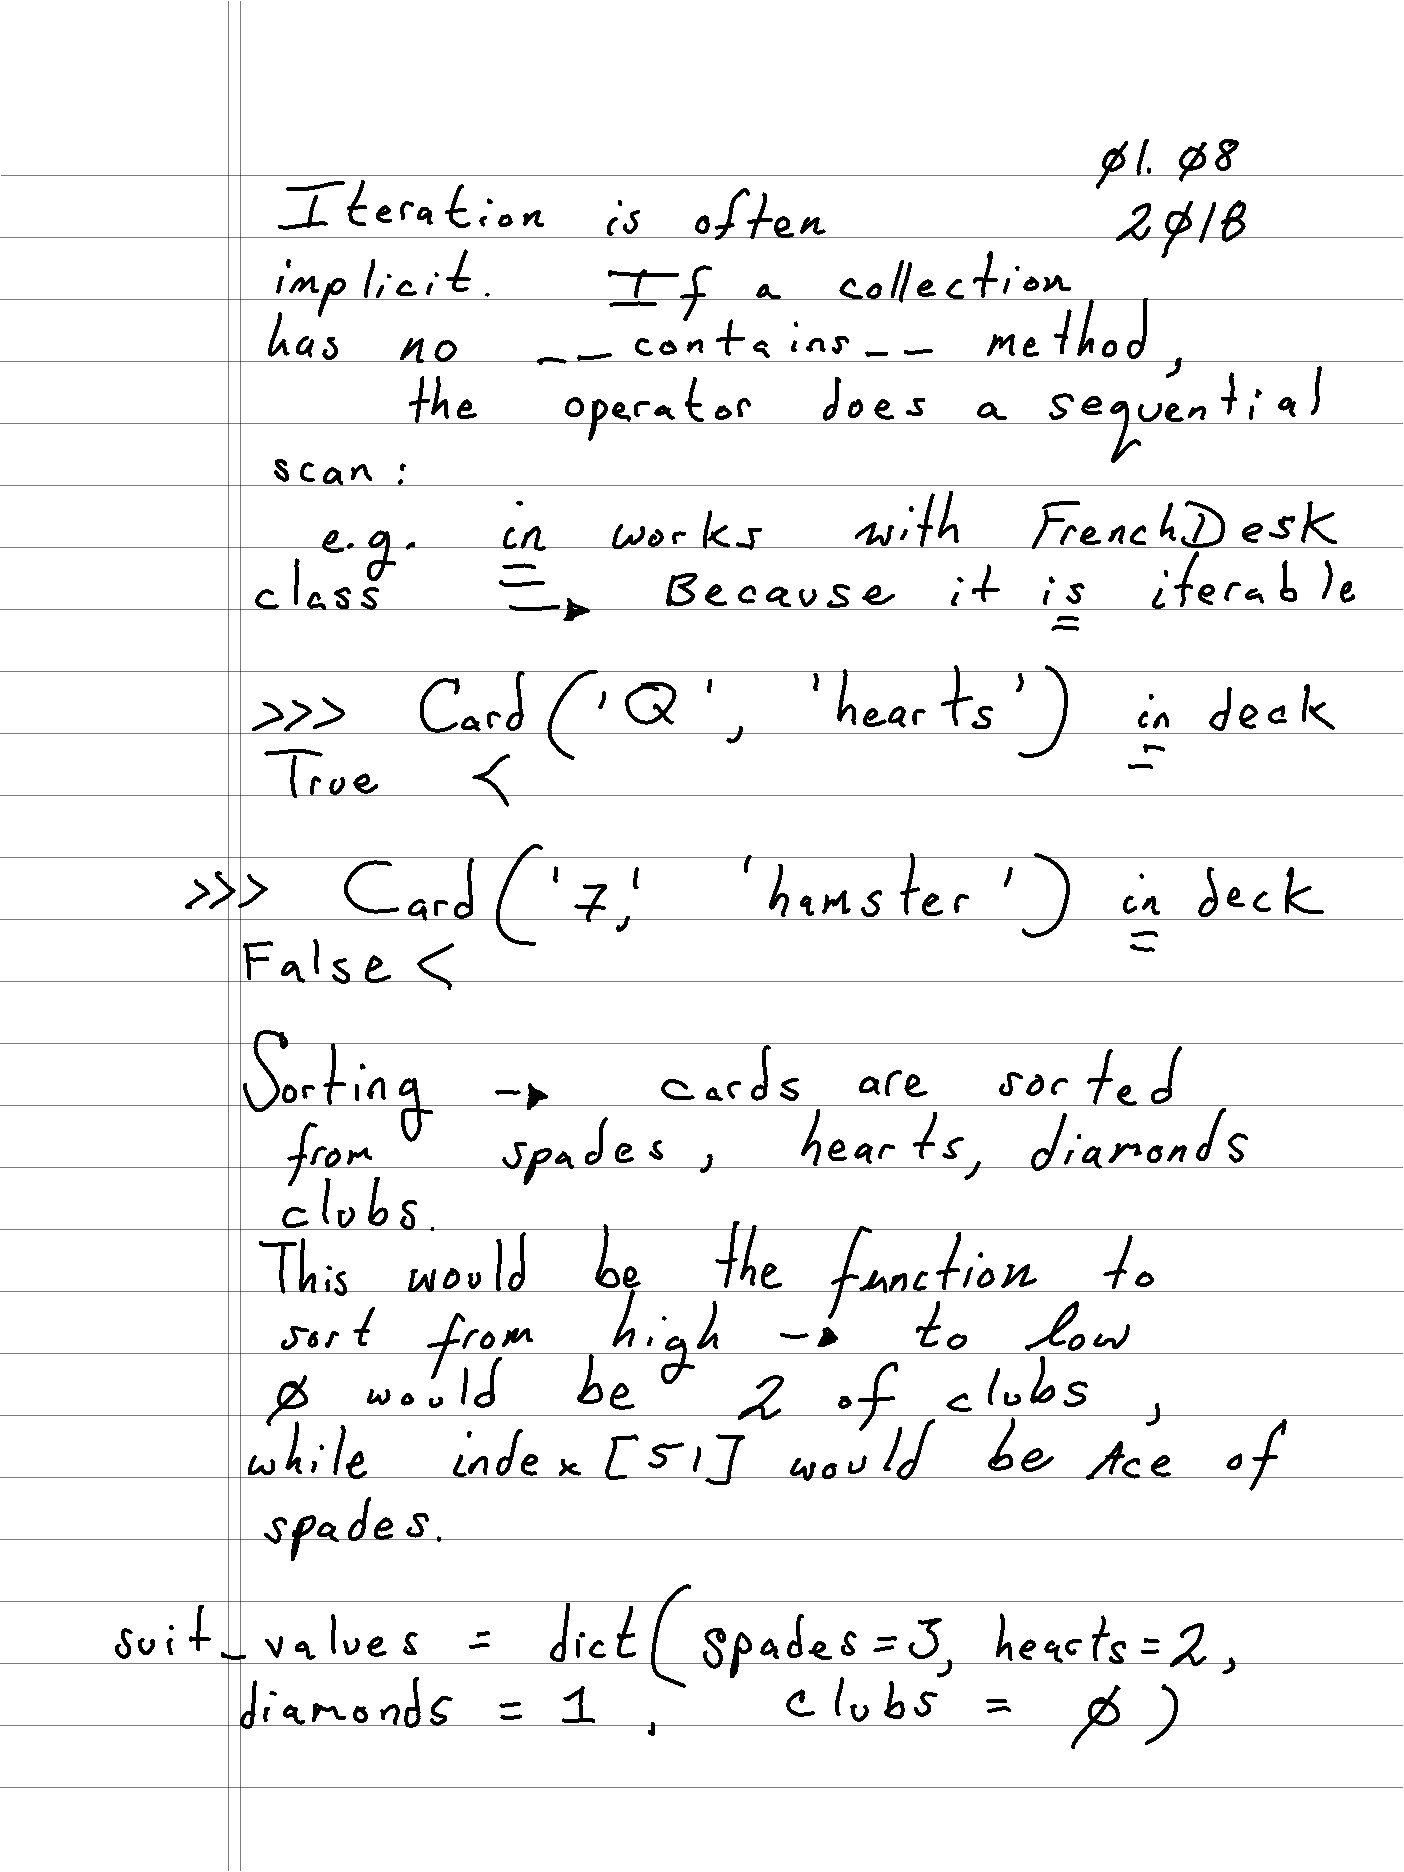 Ø1. Ø8
2Ø18
Iteration is often
implicit. If a collection
has no __contains__ method,
the operator does a sequential
scan:
e.g. in works with FrenchDesk
class → Because it is iterable
>>> Card('Q', 'hearts') in deck
True <
>>> Card('7,' 'hamster') in deck
False <
Sorting → cards are sorted
from spades, hearts, diamonds
clubs.
This would be the function to
sort from high → to low
Ø would be 2 of clubs,
while index [51] would be Ace of
spades.
suit_values = dict(spades=3, hearts=2,
diamonds = 1, clubs = Ø)